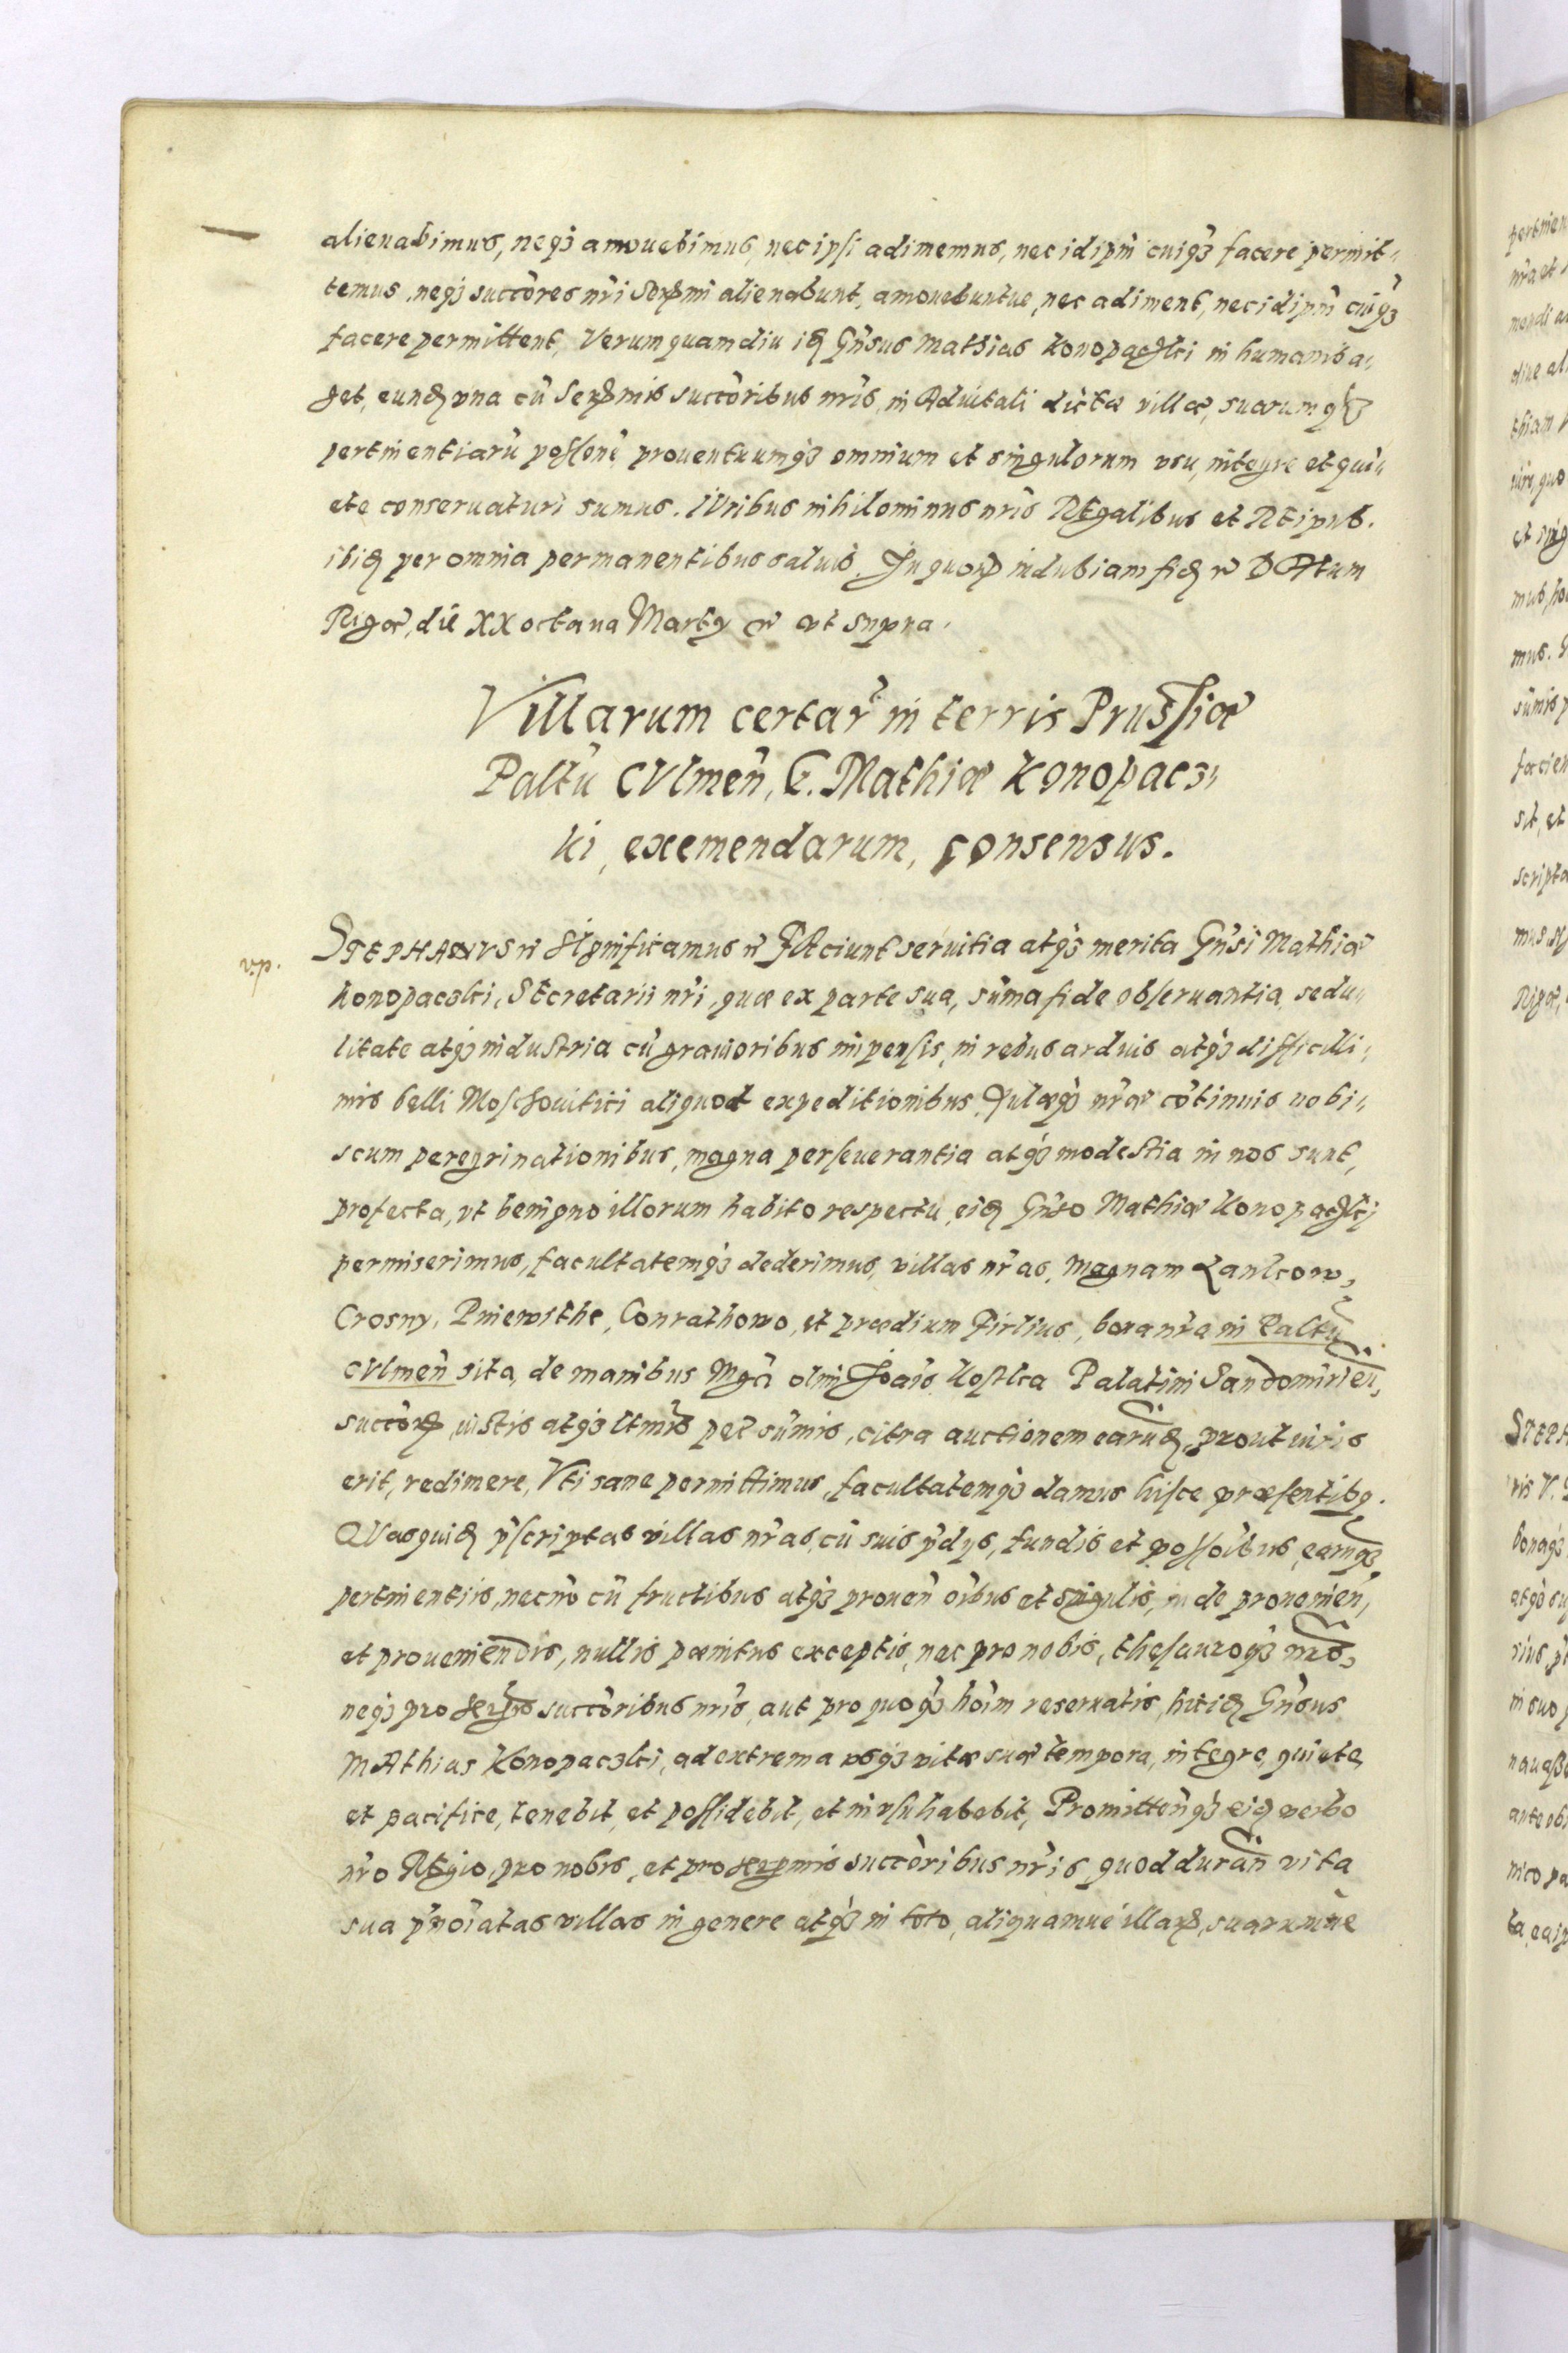 alienabimus, neqз amouebimus, nec ipsi adimemus, nec idipm̃ cuiqз facere permit„
temus, neqз succ̃ores nr̃i Serꝝmi alienabunt, amouebuntue, nec adiment, nec idipm̃ cuiqз
facere permittent, Verum quamdiu idꝫ Gñsus Mathias Konopaczki in humanis a„
get, eundꝫ vna cũ Serꝝmis succ̃oribus nr̃is, in Aduitali dictæ villæ, suarumqз
pertinentiarũ possone prouentuumqз omnium et singulorum vsu, integre et qui„
ete conseruaturi sumus. IVribus nihilominus nr̃is REgalibus et REipub.
ibidꝫ per omnia permanentibus saluis. In quoꝝ indubiam fidꝫ ꝛc̃ DAtum
Rigæ, die XX octaua Martij ꝛc̃ vt supra.
Villarum certar̃ in terris Prussiæ
Paltũ CVlmeñ, G. Mathiæ Konopacz„
ki, exemendarum, consensus.
STEPHANVS ꝛc̃ SIgnificamus ꝛc̃ FAciunt seruitia atqз merita Gñsi Mathiæ
v.p.
Konopaczki, SEcretarii nr̃i, quæ ex parte sua, sum̃a fide obseruantia, sedu„
litate atqз industria cũ grauioribus impensis, in rebus arduis atqз difficilli„
mis belli Moschouitici aliquot expeditionibus, Aulæqз nr̃æ cõtinuis nobi„
scum peregrinationibus, magna perseuerantia atqз modestia in nos sunt,
profecta, vt benigno illorum habito respectu, eidꝫ Gñso Mathiæ Konopaczkij
permiserimus, facultatemqз dederimus, villas nr̃as, Magnam Lankow,
Crosny, Pniewithe, Conrathowo, et prædium Firlius, bona nr̃a in Paltũ
CVlmeñ sita, de manibus Mgci olim Joañis Kostka Palatini Sandomirieñ,
succ̃oꝝ, iustis atqз ltm̃is pec̃ sum̃is, citra auctionem earundꝫ, prout iuris
erit, redimere, Vti sane permittimus, facultatemqз damus hisce præsentibꝫ.
QVasquidꝫ p̃scriptas villas nr̃as, cũ suis p̃dys, fundis et possoĩbus, earumqз
pertinentiis, necno cũ fructibus atqз proueñ oĩbus et singulis, inde prouenieñ,
et proueniendis, nullis pænitus exceptis, nec pro nobis, thesauroqз nr̃o,
neqз pro serꝝmis succ̃oribus nr̃is, aut pro quoqз hoĩm reseruatis, hicidꝫ Gñsus
MAthias Konopaczki, ad extrema vsqз vitæ suæ tempora, integre, quiete,
et pacifice, tenebit, et possidebit, et in vsu habebit, Promitteñqз eidꝫ verbo
nr̃o REgio, pro nobis, et pro serꝝmis succ̃oribus nr̃is quod durañ vita
sua p̃noĩatas villas in genere atqз in toto, aliquamue illaꝝ, suarumue